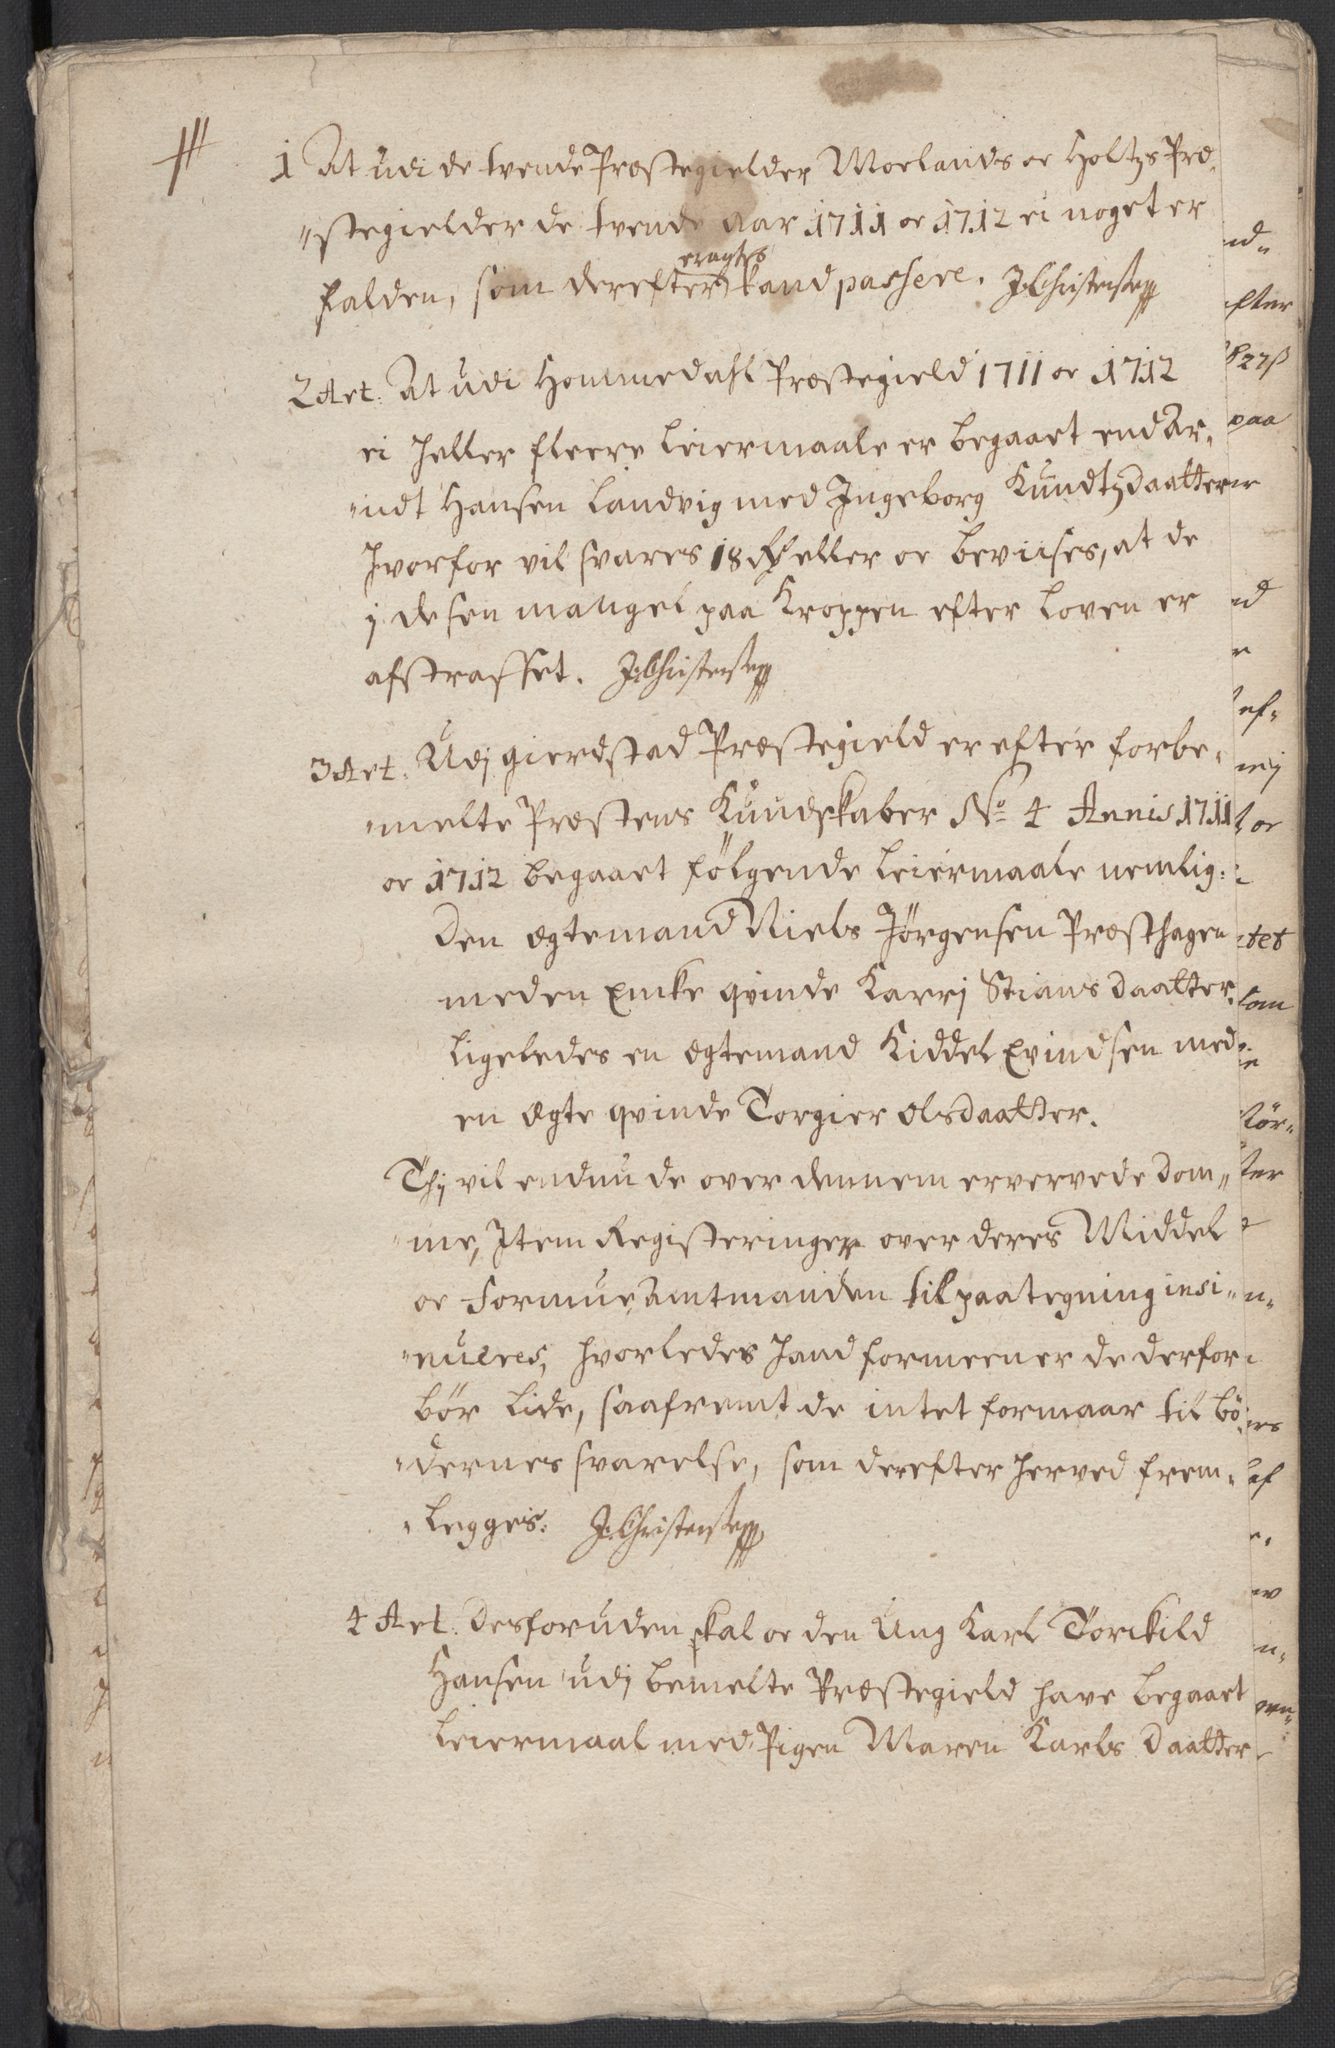 1 At udi de tvende Præstegielder Moelands oc Holtzs Præ,
"stegielder de tvende Aar 1711 oc 1712 ei noget er
eragtes
falden, som derefter kand passere. J:Christensen
2 Art. At udi Hommedahl Præstegield 1711 oc 1712
ei heller fleere leiermaale er begaaet end Ar,
"ndt Hansen Landvig med Ingeborg Kundtzdaatter
hvorfor vil svares 18 eller oc beviises, at de
j desen mangel paa Kroppen efter loven er
afstraffet. J:Christensen
3 Art. Udj gierdstad Præstegield er efter forbe,
"melte Præstens Kundskaber No 4 Annis 1711
oc 1712 begaaet følgende leiermaale nemlig:
Den ægtemand Niels Jørgensen Præsthagen
med en Encke qvinde Karrj Stians daatter.
Ligeledes en ægtemand Kiddel Evindsen med
en ægte qvinde Torgier Olsdaatter.
Thj vil endnu de over dennem ervervede Dom"
"me, Item Registeringer over deres Middel
oc formue Amtmanden til paategning insi"
"nueres, hvorledes hand formeener de derfor
bør lide, saafremt de intet formaar til bø
"dernes svarelse, som derefter herved frem,
"legges. J:Christensen
4 Art. Desforuden skal oc den Ung Karl Torckild
Hansen udj bemelte Præstegield have begaaet
Leiermaal med Pigen Maren Karls Daatter